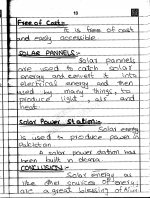 19
Free of Cost:-
It is free of cost
and easily accessible
SOLAR PANNELS:-
Solar pannels
are used to catch solar
energy and convert it into
electrical energy and then
used by many things, to
produce light, air and
heat.
Solar Power Station:-
Solar energy
is used to produce power in
Pakistan.
A solar power station has
been built in
CONCLUSION:-
Solar energy as
like other sources of energy,
are a great blessing of Allah